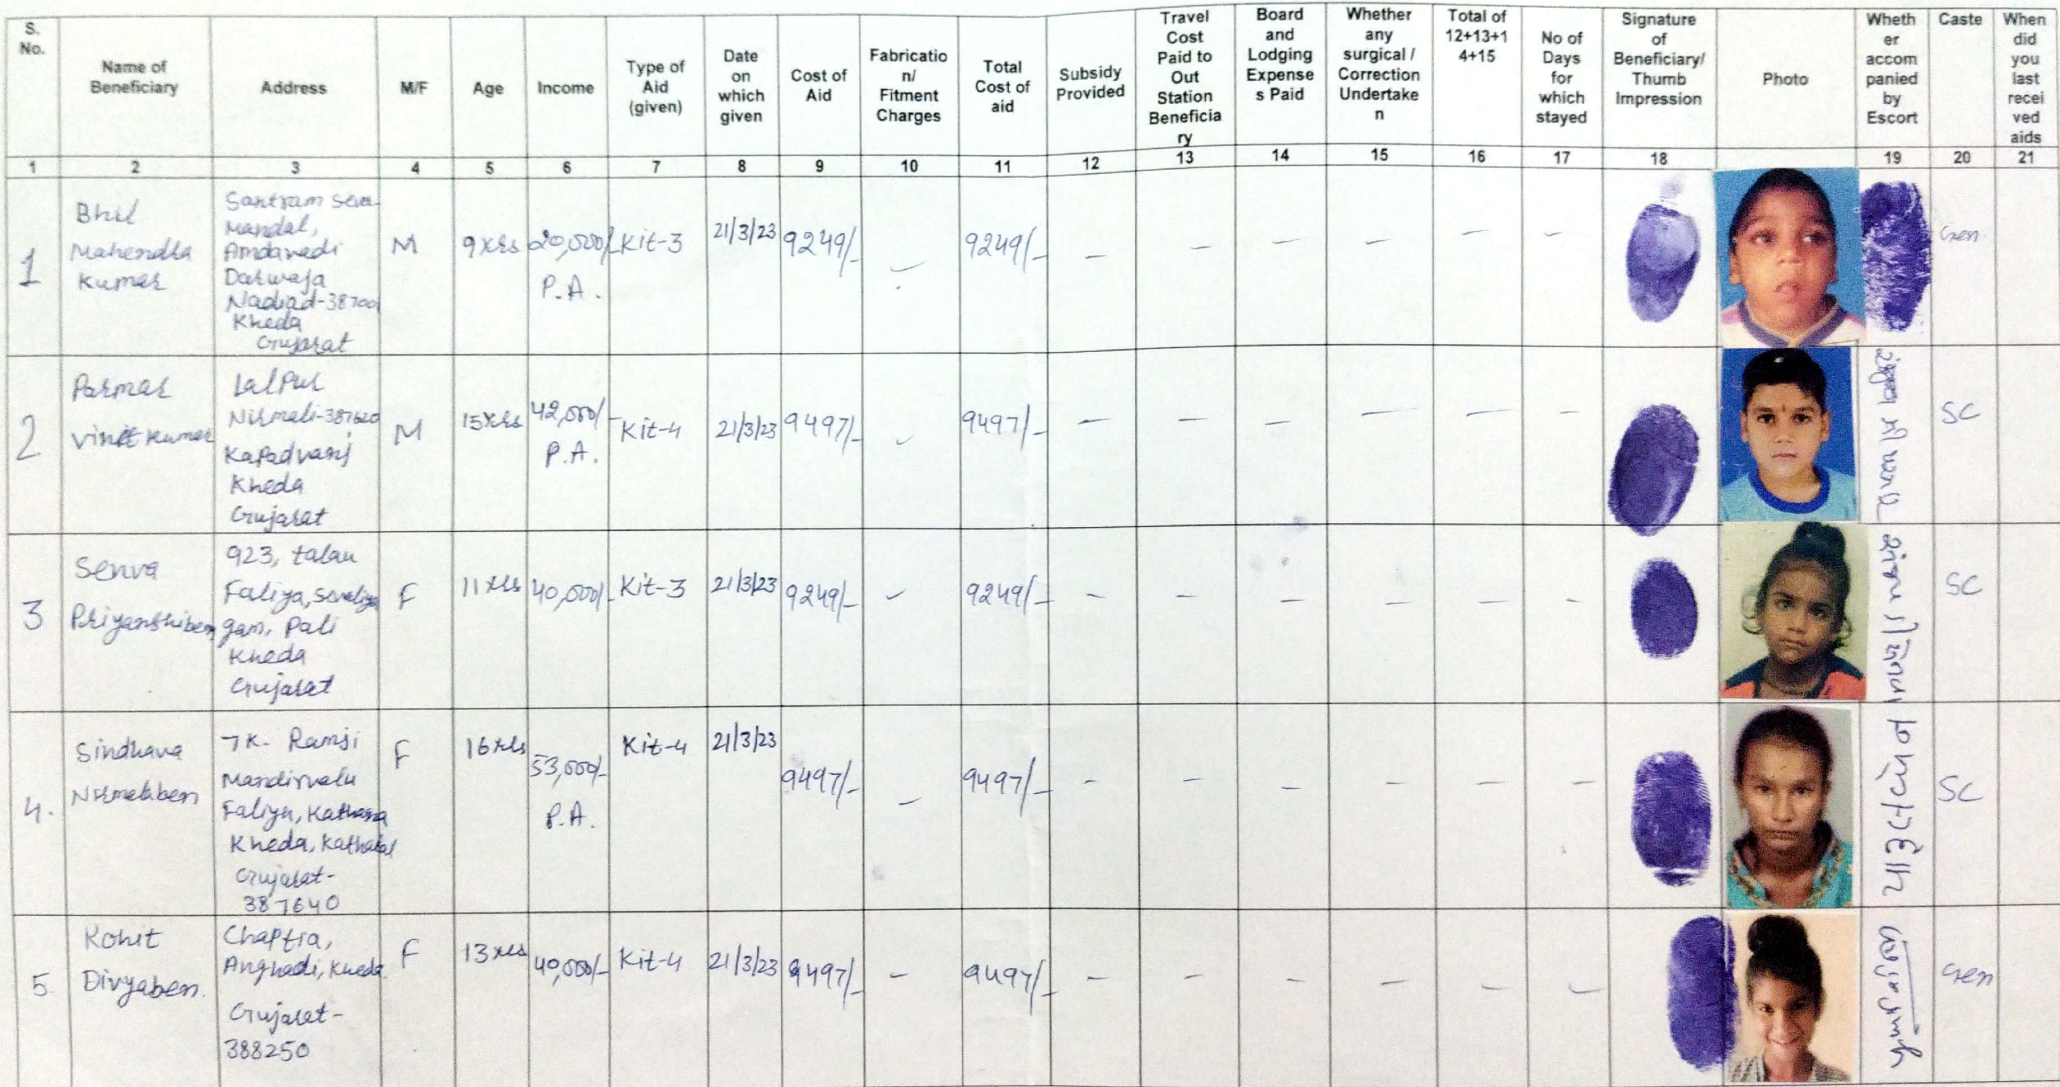 S. No.
Name of Beneficiary
Address
M/F
Age
Income
Type of Aid (given)
Date on which given
Cost of Aid
Fabricatio n/ Fitment Charges
Total Cost of aid
Subsidy Provided
Travel Cost Paid to Out Station Beneficia ry
Board and Lodging Expense s Paid
Whether any surgical / Correction Undertake n
Total of 12+13+1 4+15
No of Days for which stayed
Signature of Beneficiary/ Thumb Impression
Photo
Wheth er accom panied by Escort
Caste
When did you last recei ved aids
1 2 3 4 5 6 7 8 9 10 11 12 13 14 15 16 17 18 19 20 21
1
Bhil
Mahendra
Kumar
Santram Seva
Mandal,
Amdavadi
Darwaja
Nadiad-38700
Kheda
Gujarat
M
9 yrs
20,000/-
P.A.
Kit-3
21/3/23
9249/-
9249/- - - - - - -
Gen
2
Parmar
Vinit Kumar
Lal Pur
Nirmali-387620
Kapadvanj
Kheda
Gujarat
M
15 yrs
42,000/-
P.A.
Kit-4
21/3/23
9497/-
9497/- - - - - - -
SC
3
Senva
Priyanshiben
923, talau
Faliya,
gam, Pali
Kheda
Gujarat
F
11 yrs
40,000/-
Kit-3
21/3/23
9249/-
9249/- - - - - - -
SC
4.
Sindhava
Nirmalaben
7K- Ramji
Mandirvalu
Faliyu, Kathana
Kheda, Kathalal
Gujarat-
387640
F
16 yrs
53,000/-
P.A.
Kit-4
21/3/23
9497/-
9497/- - - - - - -
SC
5.
Rohit
Divyaben.
Chaptra,
Anghadi, Kheda
Gujarat-
388250
F
13 yrs
40,000/-
Kit-4
21/3/23
9497/-
9497/- - - - - - -
Gen